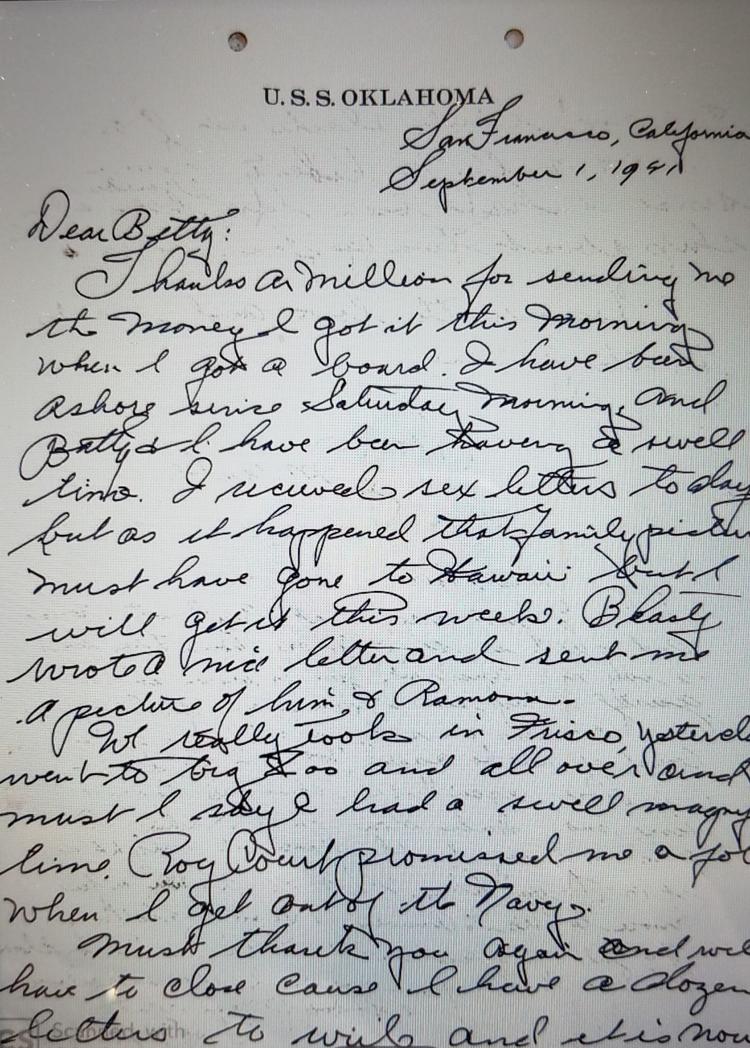 U. S. S. OKLAHOMA
San Francisco, California
September 1, 1941
Dear Betty:
Thanks a million for sending me
the money I got it this morning
when I got a board. I have been
ashore since Saturday morning, and
Betty & I have been having a swell
time. I recieved sex letters to day
but as it happened that family pictu
must have gone to Hawaii but I
will get it this week. Blasty
wrote a nice letter and sent me
a picture of him & Ramona.
We really took in Frisco, yesterd
went to big Zoo and all over and
must I say I had a swell
time. Roy Court promissed me a jo
when I get out of the Navy.
Must thank you again and wil
have to close cause I have a dozen
letters to write and it is now
Scanned with